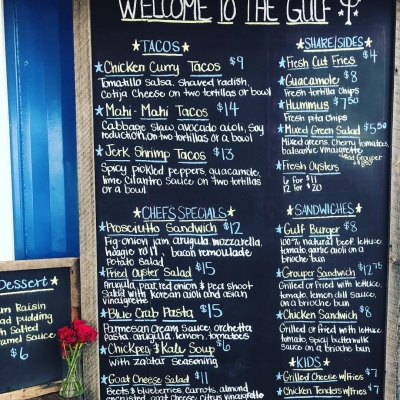 WELCOME TO THE GULF
TACOS
Chicken Curry Tacos $9
Tomatillo Salsa, shaved radish,
Cotija Cheese on two tortillas or bowl
Mahi-Mahi Tacos $14
Cabbage slaw, avocado aioli, soy
reduction, on two tortillas or a bowl
Jerk Shrimp Tacos $13
Spicy pickled peppers, guacamole,
lime cilantro Sauce on two tortillas
or a bowl.
CHEF'S SPECIALS
Prosciutto Sandwich $12
Fig-onion jam, arugula, mozzarella,
hoagie roll, bacon remoulade
Potato salad
Fried Oyster Salad $15
Arugula, pear, red onion & pea shoot
Salad with Korean aioli and asian
vinaigrette
Blue Crab Pasta $15
Parmesan cream sauce, orchetta
pasta, arugula, lemon, tomatoes
Chickpea & Kale Soup $6
with za'atar seasoning
Goat Cheese Salad $11
Beets & blueberries, carrots, almond
encrusted goat cheese, citrus vinaigrette
SHARE|SIDES
Fresh Cut Fries $4
Guacamole $8
Fresh tortilla chips
Hummus $7.50
Fresh pita chips
Mixed Green Salad $5.50
Mixed greens, cherry tomatoes,
balsamic vinaigrette
Add Grouper
Fresh Oysters
6 for $11
12 for $20
SANDWICHES
Gulf Burger $8
100% natural beef, lettuce,
tomato, garlic aioli on a
brioche bun
Grouper Sandwich $12.75
Grilled or Fried with lettuce,
tomato, lemon dill sauce,
on a brioche bun
Chicken Sandwich $8
Grilled or fried with lettuce,
tomato, spicy buttermilk
sauce on a brioche bun.
KIDS
Grilled Cheese w/fries $7
Chicken Tenders w/fries $7
Dessert
Raisin
pudding
th Salted
ramel Sauce
$6